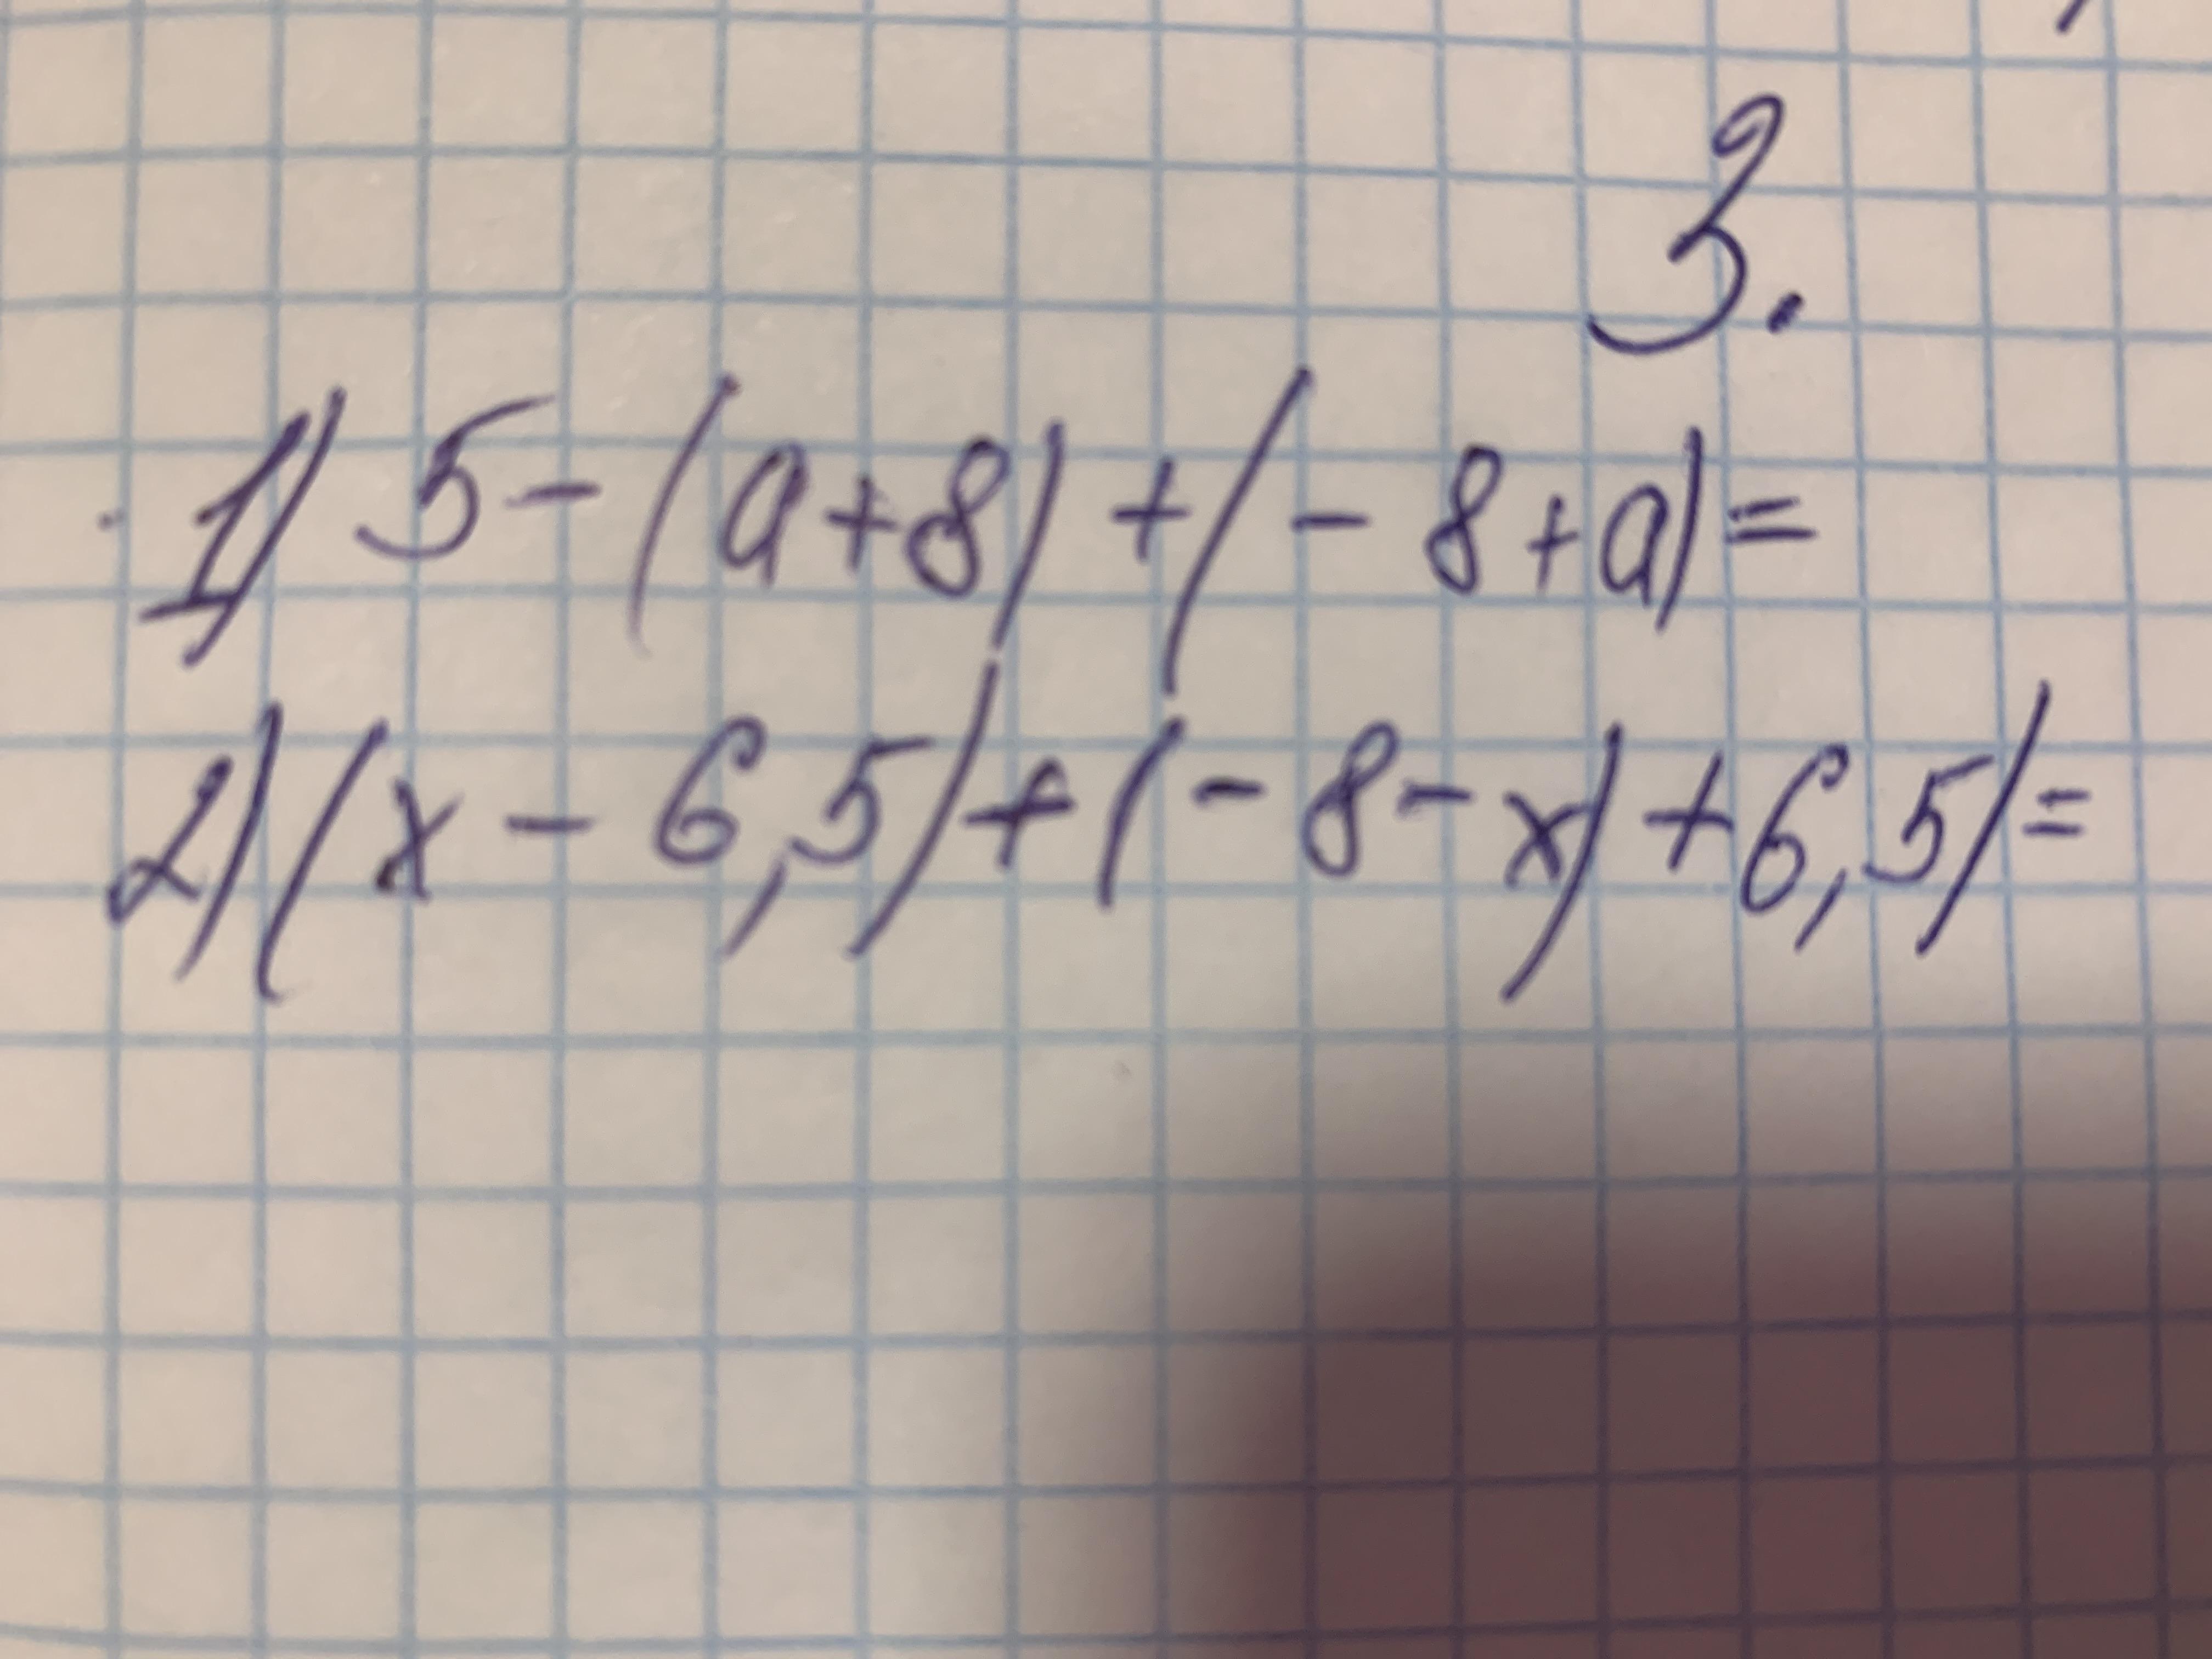 3.
1) 5 - (a + 8) + (- 8 + a) =
2) (x - 6,5) + (- 8 - x) + 6,5) =